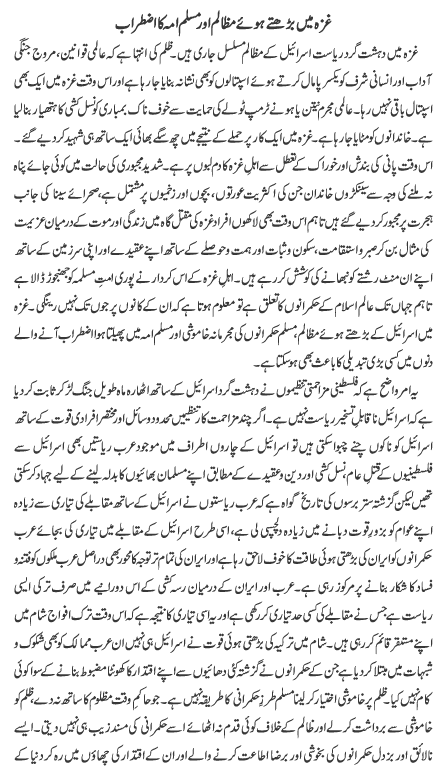 غزہ میں بڑھتے ہوئے مظالم اور مسلم امہ کا اضطراب
غزہ میں دہشت گرد ریاست اسرائیل کے مظالم مسلسل جاری ہیں۔ ظلم کی انتہا ہے کہ عالمی قوانین، مروج جنگی
آداب اور انسانی شرف کو یکسر پامال کرتے ہوئے اسپتالوں کو بھی نشانہ بنایا جا رہا ہے اور اس وقت غزہ میں ایک بھی
اسپتال باقی نہیں رہا۔ عالمی مجرم نیتن یاہو نے ٹرمپ ٹولے کی حمایت سے خوف ناک بمباری کو نسل کشی کا ہتھیار بنا لیا
ہے۔ خاندانوں کو مٹایا جا رہا ہے۔ غزہ میں ایک کار پر حملے کے نتیجے میں چھ سگے بھائی ایک ساتھ ہی شہید کر دیے گئے۔
اس وقت پانی کی بندش اور خوراک کے تعطل سے اہل غزہ کا دم لبوں پر ہے۔ شدید مجبوری کی حالت میں کوئی جائے پناہ
نہ ملنے کی وجہ سے سینکڑوں خاندان جن کی اکثریت عورتوں، بچوں اور زخمیوں پر مشتمل ہے، صحرائے سینا کی جانب
ہجرت پر مجبور کر دیے گئے ہیں تاہم اس وقت بھی لاکھوں افراد غزہ کی مقتل گاہ میں زندگی اور موت کے درمیان عزیمت
کی مثال بن کر صبر و استقامت، سکون و ثبات اور ہمت و حوصلے کے ساتھ اپنے عقیدے اور اپنی سرزمین کے ساتھ
اپنے ان مٹ رشتے کو نبھانے کی کوشش کر رہے ہیں۔ اہل غزہ کے اس کردار نے پوری امت مسلمہ کو جھنجوڑ ڈالا ہے
تاہم جہاں تک عالم اسلام کے حکمرانوں کا تعلق ہے تو معلوم ہوتا ہے کہ ان کے کانوں پر جوں تک نہیں رینگی۔ غزہ
میں اسرائیل کے بڑھتے ہوئے مظالم، مسلم حکمرانوں کی مجرمانہ خاموشی اور مسلم امہ میں پھیلتا ہوا اضطراب آنے والے
دنوں میں کسی بڑی تبدیلی کا باعث بھی ہو سکتا ہے۔
یہ امر واضح ہے کہ فلسطینی مزاحمتی تنظیموں نے دہشت گرد اسرائیل کے ساتھ اٹھارہ ماہ طویل جنگ لڑ کر ثابت کر دیا
ہے کہ اسرائیل ناقابل تسخیر ریاست نہیں ہے۔ اگر چند مزاحمت کار تنظیمیں محدود وسائل اور مختصر افرادی قوت کے ساتھ
اسرائیل کو ناکوں چنے چبوا سکتی ہیں تو اسرائیل کے چاروں اطراف میں موجود عرب ریاستیں بھی اسرائیل سے
فلسطینیوں کے قتل عام، نسل کشی اور دین و عقیدے کے مطابق اپنے مسلمان بھائیوں کا بدلہ لینے کے لیے جہاد کر سکتی
تھیں لیکن گزشتہ ستر برسوں کی تاریخ گواہ ہے کہ عرب ریاستوں نے اسرائیل کے ساتھ مقابلے کی تیاری سے زیادہ
اپنے عوام کو بزور قوت دبانے میں زیادہ دلچسپی لی ہے، اسی طرح اسرائیل کے مقابلے میں تیاری کی بجائے عرب
حکمرانوں کو ایران کی بڑھتی ہوئی طاقت کا خوف لاحق رہا ہے اور ایران کی تمام تر توجہ کا محور بھی دراصل عرب ملکوں کو فتنہ و
فساد کا شکار بنانے پر مرکوز رہی ہے۔ عرب اور ایران کے درمیان رسہ کشی کے اس دورانیے میں صرف ترکی ایسی
ریاست ہے جس نے مقابلے کی کسی حد تیاری کر رکھی ہے اور یہ اسی تیاری کا نتیجہ ہے کہ اس وقت ترک افواج شام میں
اپنے مستقر قائم کر رہی ہیں۔ شام میں ترکیہ کی بڑھتی ہوئی قوت نے اسرائیل ہی نہیں ان عرب ممالک کو بھی شکوک و
شبہات میں مبتلا کر دیا ہے جن کے حکمرانوں نے گزشتہ کئی دھائیوں سے اپنے اقتدار کا کھونٹا مضبوط بنانے کے سوا کوئی
کام نہیں کیا۔ ظلم پر خاموشی اختیار کر لینا مسلم طرز حکمرانی کا طریقہ نہیں ہے۔ جو حاکم وقت مظلوم کا ساتھ نہ دے، ظلم کو
خاموشی سے برداشت کر لے اور ظالم کے خلاف کوئی قدم نہ اٹھائے اسے حکمرانی کی مسند زیب ہی نہیں دیتی۔ ایسے
نالائق اور بزدل حکمرانوں کی بخوشی اور برضا اطاعت کرنے والے اور ان کے اقتدار کی چھاؤں میں رہ کر دنیا کے